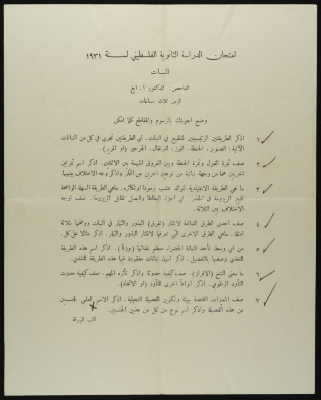 امتحان الدراسة الثانوية الفلسطيني لسنة ١٩٣١
النبات
الفاحص: الدكتور ا. ايج
الزمن ثلاث ساعات
وضح اجوبتك بالرسوم والمقاطع كلما امكن
١ اذكر الطريقتين الرئيسيتين للتلقيح في النبات. اي الطريقتين تجري في كل من النباتات
الآتية: الصنوبر، الحنطة، التوت، البرتقال، الجرجير (او الحرير).
٢ صف ثمرة الفول وثمرة الحنطة وبين الفروق المهمة بين الاثنتين. اذكر اسم ثمرتين
آخريين هما من وجهة نباتية من نوعين آخرين عن
٣ ما هي الطريقة الاعتيادية لتوالد عشب وتكاثره. ماهي الطريقة السهلة الواضحة
لتكثير الريزومة في الحقل. اي اجزاء البطاطا والبصل تقابل الريزومة. صف اوجه
الاختلاف بين الثلاثة.
٤ صف احدى الطرق الشائعة لانتثار (تفرق) البذور والثمار في النبات ووضحها بثلاثة
امثلة. ماهي الطرق الاخرى التي تعرفها لانتثار البذور والثمار. اذكر مثالا على كل.
٥ من اي وسط تأخذ النباتة الخضراء معظم غذائها (وزناً). اذكر اسم هذه الطريقة
للتغذي وصفها بالتفصيل. اذكر اسماء نباتات مفقودة فيها هذه الطريقة للتغذي.
٦ ما معنى النتح (الافراز). صف كيفية حدوثه واذكر تأثره المهم. صف كيفية حدوث
التأود الرطوبي. اذكر انواعاً اخرى للتأود (او الانحناء).
٧ صف المميزات المختصة بهيئة وتكوين الفصيلة النجيلية. اذكر الاسم العلمي لجنسين
من هذه الفصيلة واذكر اسم نوع من كل من هذين الجنسين.
اقلب الورقة